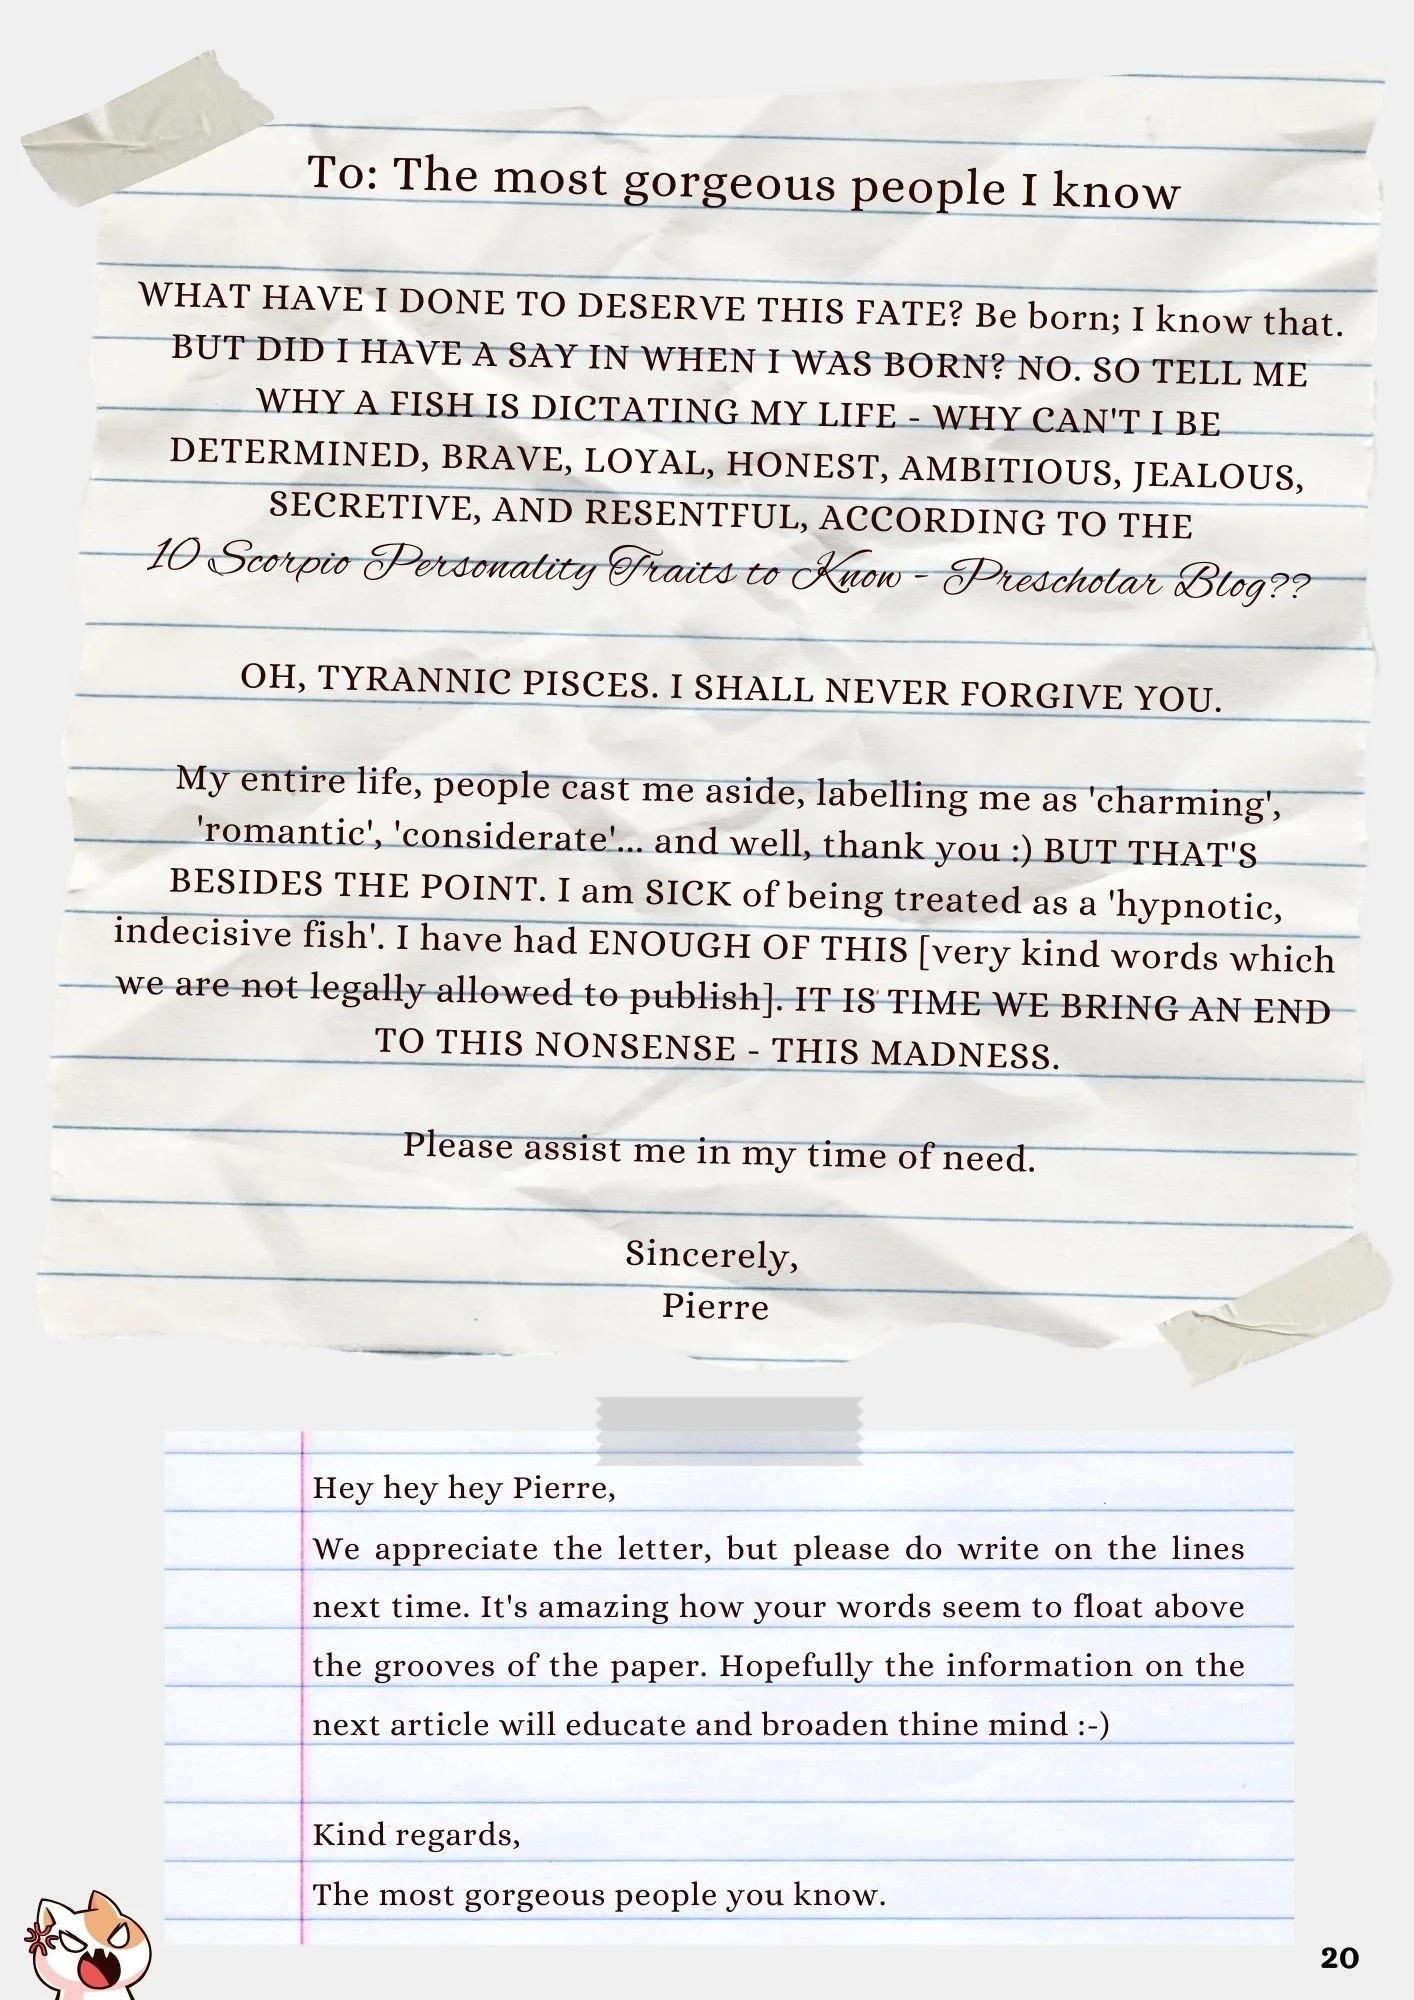 To: The most gorgeous people I know
WHAT HAVE I DONE TO DESERVE THIS FATE? Be born; I know that.
BUT DID I HAVE A SAY IN WHEN I WAS BORN? NO. SO TELL ME
WHY A FISH IS DICTATING MY LIFE - WHY CAN'T I BE
DETERMINED, BRAVE, LOYAL, HONEST, AMBITIOUS, JEALOUS,
SECRETIVE, AND RESENTFUL, ACCORDING TO THE
10 Scorpio Personality Traits to Know - Prescholar Blog??
OH, TYRANNIC PISCES. I SHALL NEVER FORGIVE YOU.
My entire life, people cast me aside, labelling me as 'charming',
'romantic', 'considerate'... and well, thank you :) BUT THAT'S
BESIDES THE POINT. I am SICK of being treated as a 'hypnotic,
indecisive fish'. I have had ENOUGH OF THIS [very kind words which
we are not legally allowed to publish]. IT IS TIME WE BRING AN END
TO THIS NONSENSE - THIS MADNESS.
Please assist me in my time of need.
Sincerely,
Pierre
Hey hey hey Pierre,
We appreciate the letter, but please do write on the lines
next time. It's amazing how your words seem to float above
the grooves of the paper. Hopefully the information on the
next article will educate and broaden thine mind :-)
Kind regards,
The most gorgeous people you know.
20